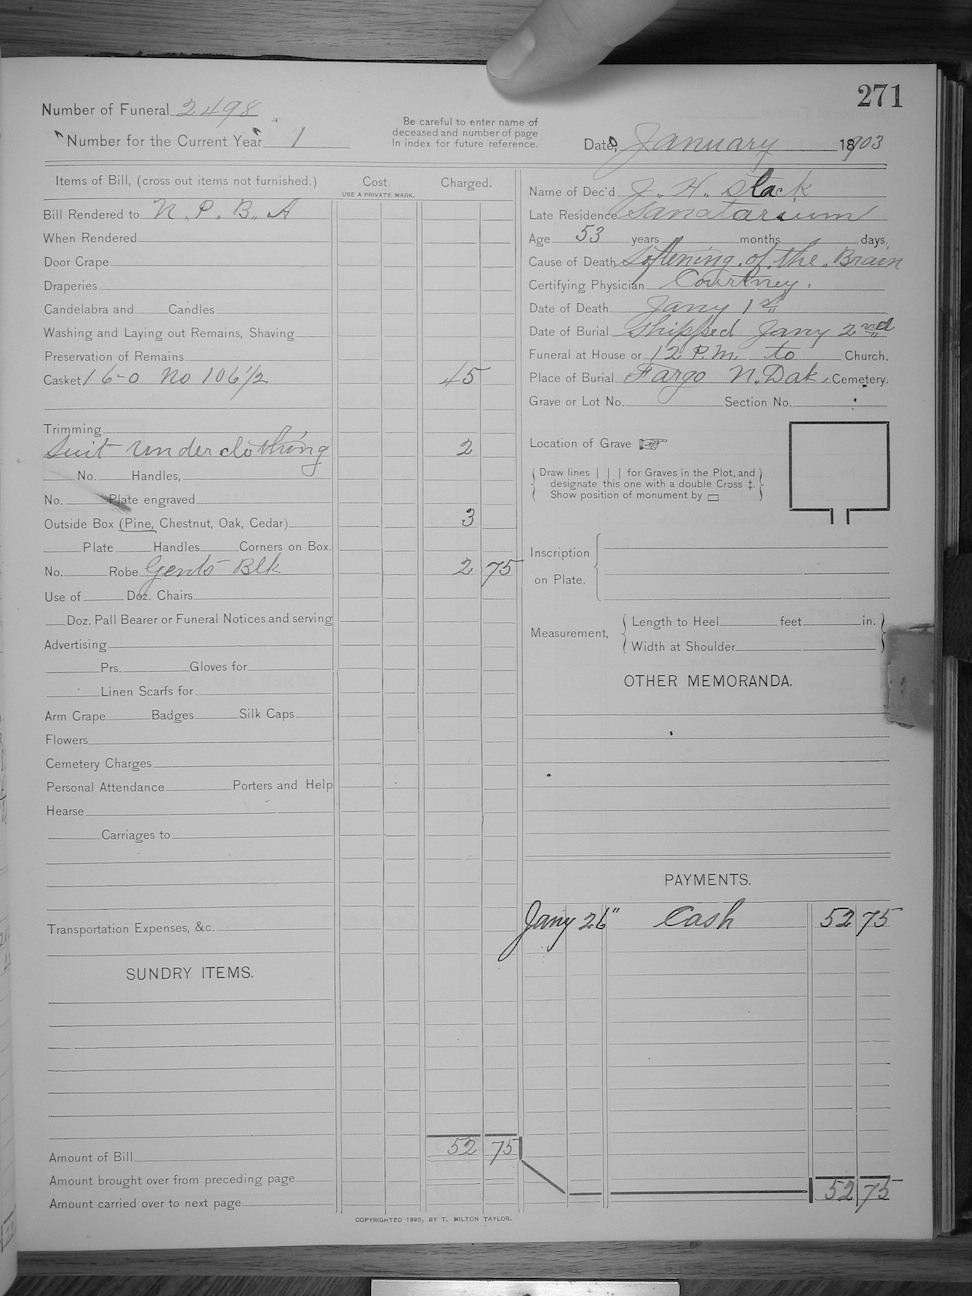 271
Number of Funeral 2498
"Number for the Current Year" 1
Be careful to enter name of
deceased and number of page
In index for future reference.
Date, January 1903
Items of Bill, (cross out items not furnished.)
Cost.
USE A PRIVATE MARK.
Charged.
Bill Rendered to N. P. B. A
When Rendered
Door Crape
Draperies
Candelabra and Candles
Washing and Laying out Remains, Shaving
Preservation of Remains
Casket 1 6-0 No 106 1/2 45
Trimming
Suit Underclothing 2
No. Handles,
No. Plate engraved
Outside Box (Pine, Chestnut, Oak, Cedar) 3
Plate Handles Corners on Box.
No. Robe Gents Blk 2 75
Use of Doz. Chairs
Doz. Pall Bearer or Funeral Notices and serving
Advertising
Prs. Gloves for
Linen Scarfs for
Arm Crape Badges Silk Caps
Flowers
Cemetery Charges
Personal Attendance Porters and Help
Hearse
Carriages to
Transportation Expenses, &c.
SUNDRY ITEMS.
Amount of Bill 52 75
Amount brought over from preceding page
Amount carried over to next page
Name of Dec'd J. H. Slack
Late Residence Sanatarium
Age 53 years months days.
Cause of Death Softening of the Brain
Certifying Physician Courtney.
Date of Death Jany 1st
Date of Burial Shipped Jany 2nd
Funeral at House or 12 P.M. to Church.
Place of Burial Fargo N. Dak. Cemetery.
Grave or Lot No. Section No.
Location of Grave
Draw lines | | | for Graves in the Plot, and
designate this one with a double Cross ‡.
Show position of monument by
Inscription
on Plate.
Measurement,
Length to Heel feet in.
Width at Shoulder
OTHER MEMORANDA.
PAYMENTS.
Jany 26" Cash 52 75
52 75
COPYRIGHTED 1890, BY T. MILTON TAYLOR.